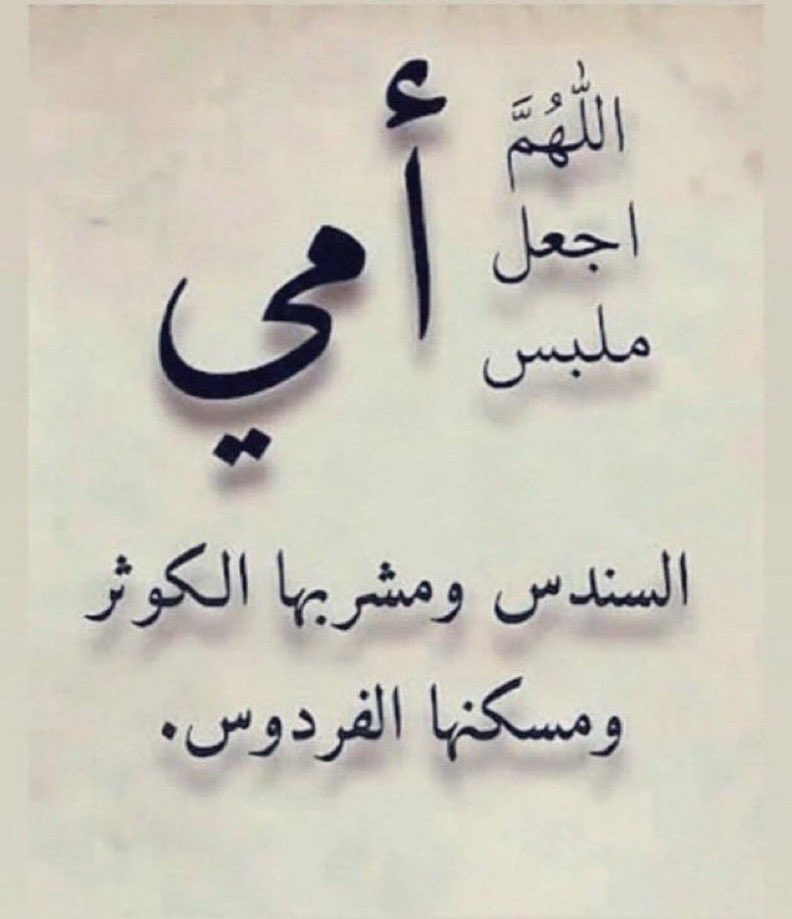 اللَّهُمَّ
اجعل
ملبس
أمي
السندس ومشربها الكوثر
ومسكنها الفردوس.